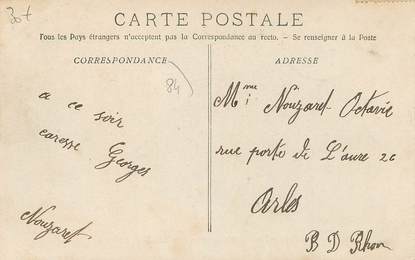 30f
CARTE POSTALE
Tous les Pays étrangers n'acceptent pas la Correspondance au recto. - Se renseigner à la Poste
CORRESPONDANCE
84
a ce soir
caresse Georges
Nouzaret
ADRESSE
Mme Nouzaret Octavie
rue porte de L'aure 26
Arles
B D Rhone